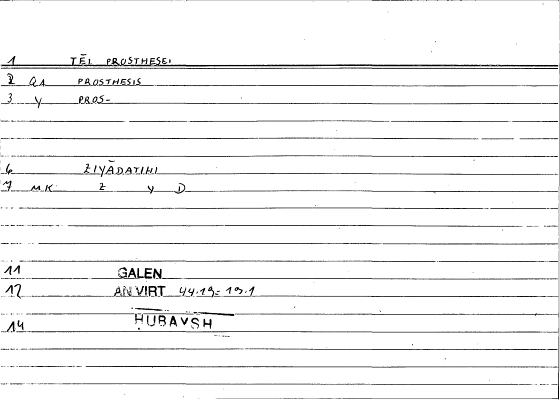 1 TĒI PROSTHESEI
2 QA PROSTHESIS
3 Y PROS-
6 ZIYĀDATIHI
7 MK Z Y D
11 GALEN
12 AN VIRT 44.19= 19.1
14 HUBAYSH